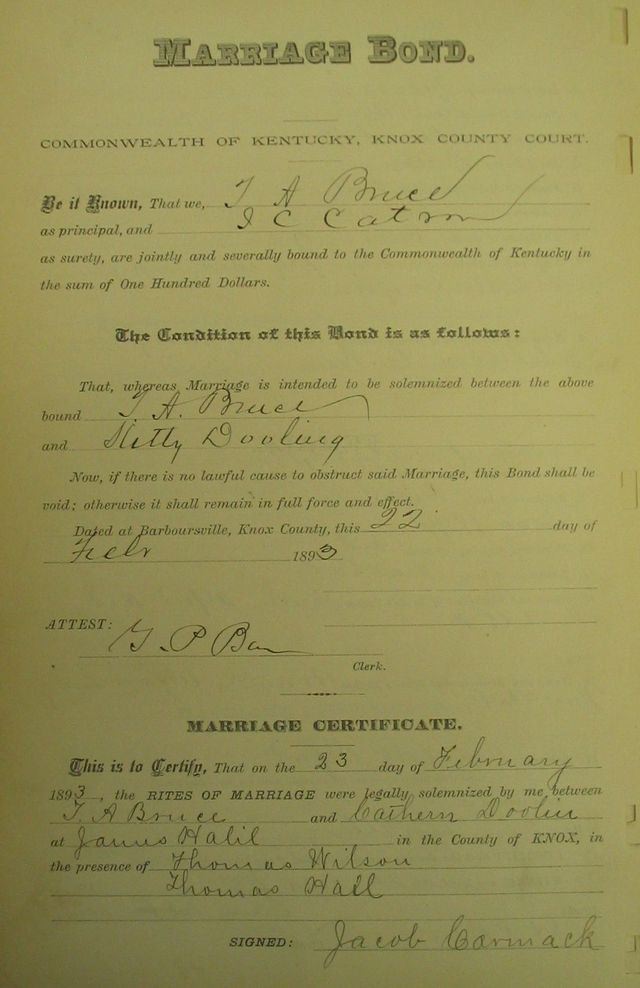 MARRIAGE BOND.
COMMONWEALTH OF KENTUCKY, KNOX COUNTY COURT.
Be it Known, That we, T A Bruce
as principal, and J C Catron
as surety, are jointly and severally bound to the Commonwealth of Kentucky in
the sum of One Hundred Dollars.
The Condition of this Bond is as follows:
That, whereas Marriage is intended to be solemnized between the above
bound T. A. Bruce
and Kitty Dooling
Now, if there is no lawful cause to obstruct said Marriage, this Bond shall be
void; otherwise it shall remain in full force and effect.
Dated at Barboursville, Knox County, this 22 day of
Feb 1893
ATTEST:
G. P. Bain
Clerk.
MARRIAGE CERTIFICATE.
This is to Certify, That on the 23 day of February
1893, the RITES OF MARRIAGE were legally solemnized by me between
T. A Bruce and Cathern Doolin
at James Halil in the County of KNOX, in
the presence of Thomas Wilson
Thomas Hall
SIGNED: Jacob Carmack